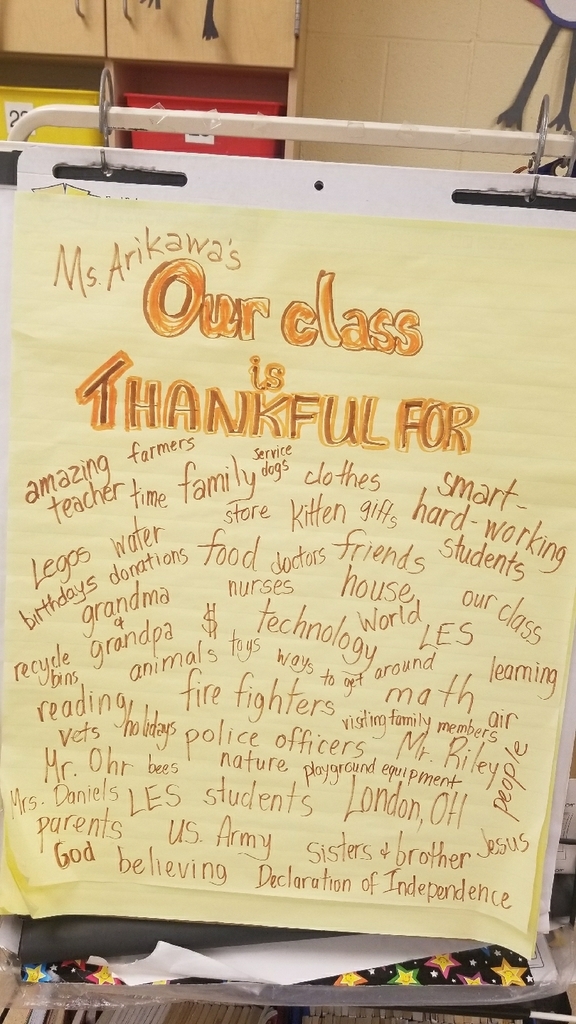 Ms. Arikawa's
Our class
is
THANKFUL FOR
amazing teacher
farmers
time
family
service dogs
clothes
smart- hard-working students
store
kitten
gifts
Legos
water
birthdays
donations
food
doctors
friends
grandma & grandpa
nurses
house
our class
$
technology
World
LES
recycle bins
animals
toys
ways to get around
learning
reading
fire fighters
math
vets
holidays
visiting family members
air
police officers
Mr. Riley
people
Mr. Ohr
bees
nature
playground equipment
Mrs. Daniels
LES students
London, OH
parents
U.S. Army
sisters & brother
Jesus
God
believing
Declaration of Independence